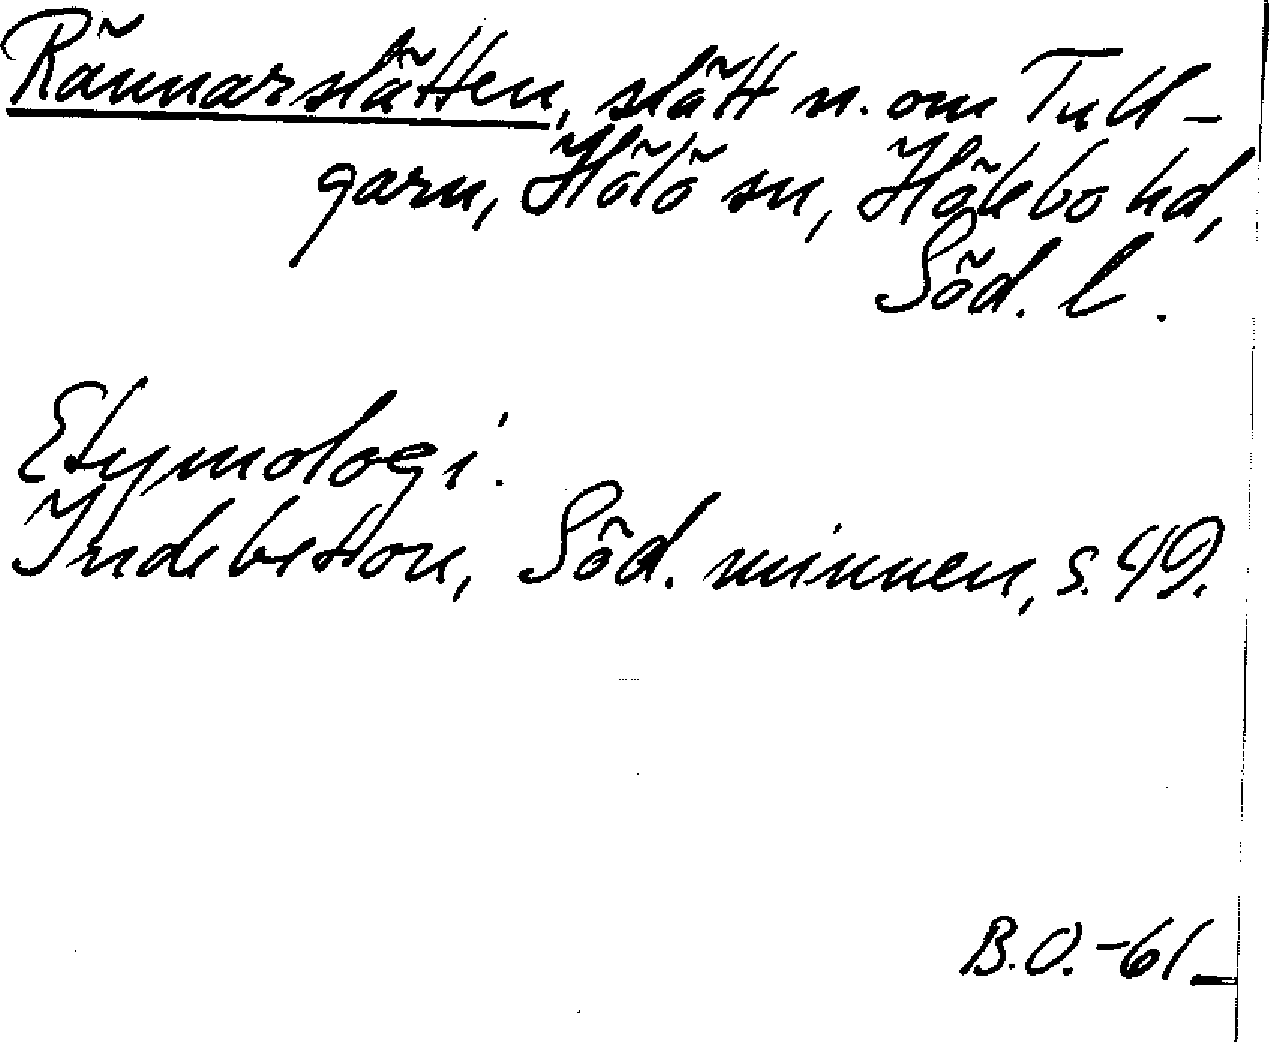 Rännarslätten, slätt n. om Tull-
garn, Hölö sn, Hölebo hd,
Söd. l.
Etymologi.
Indebetou, Söd. minnen, s. 49.
B.O.-61